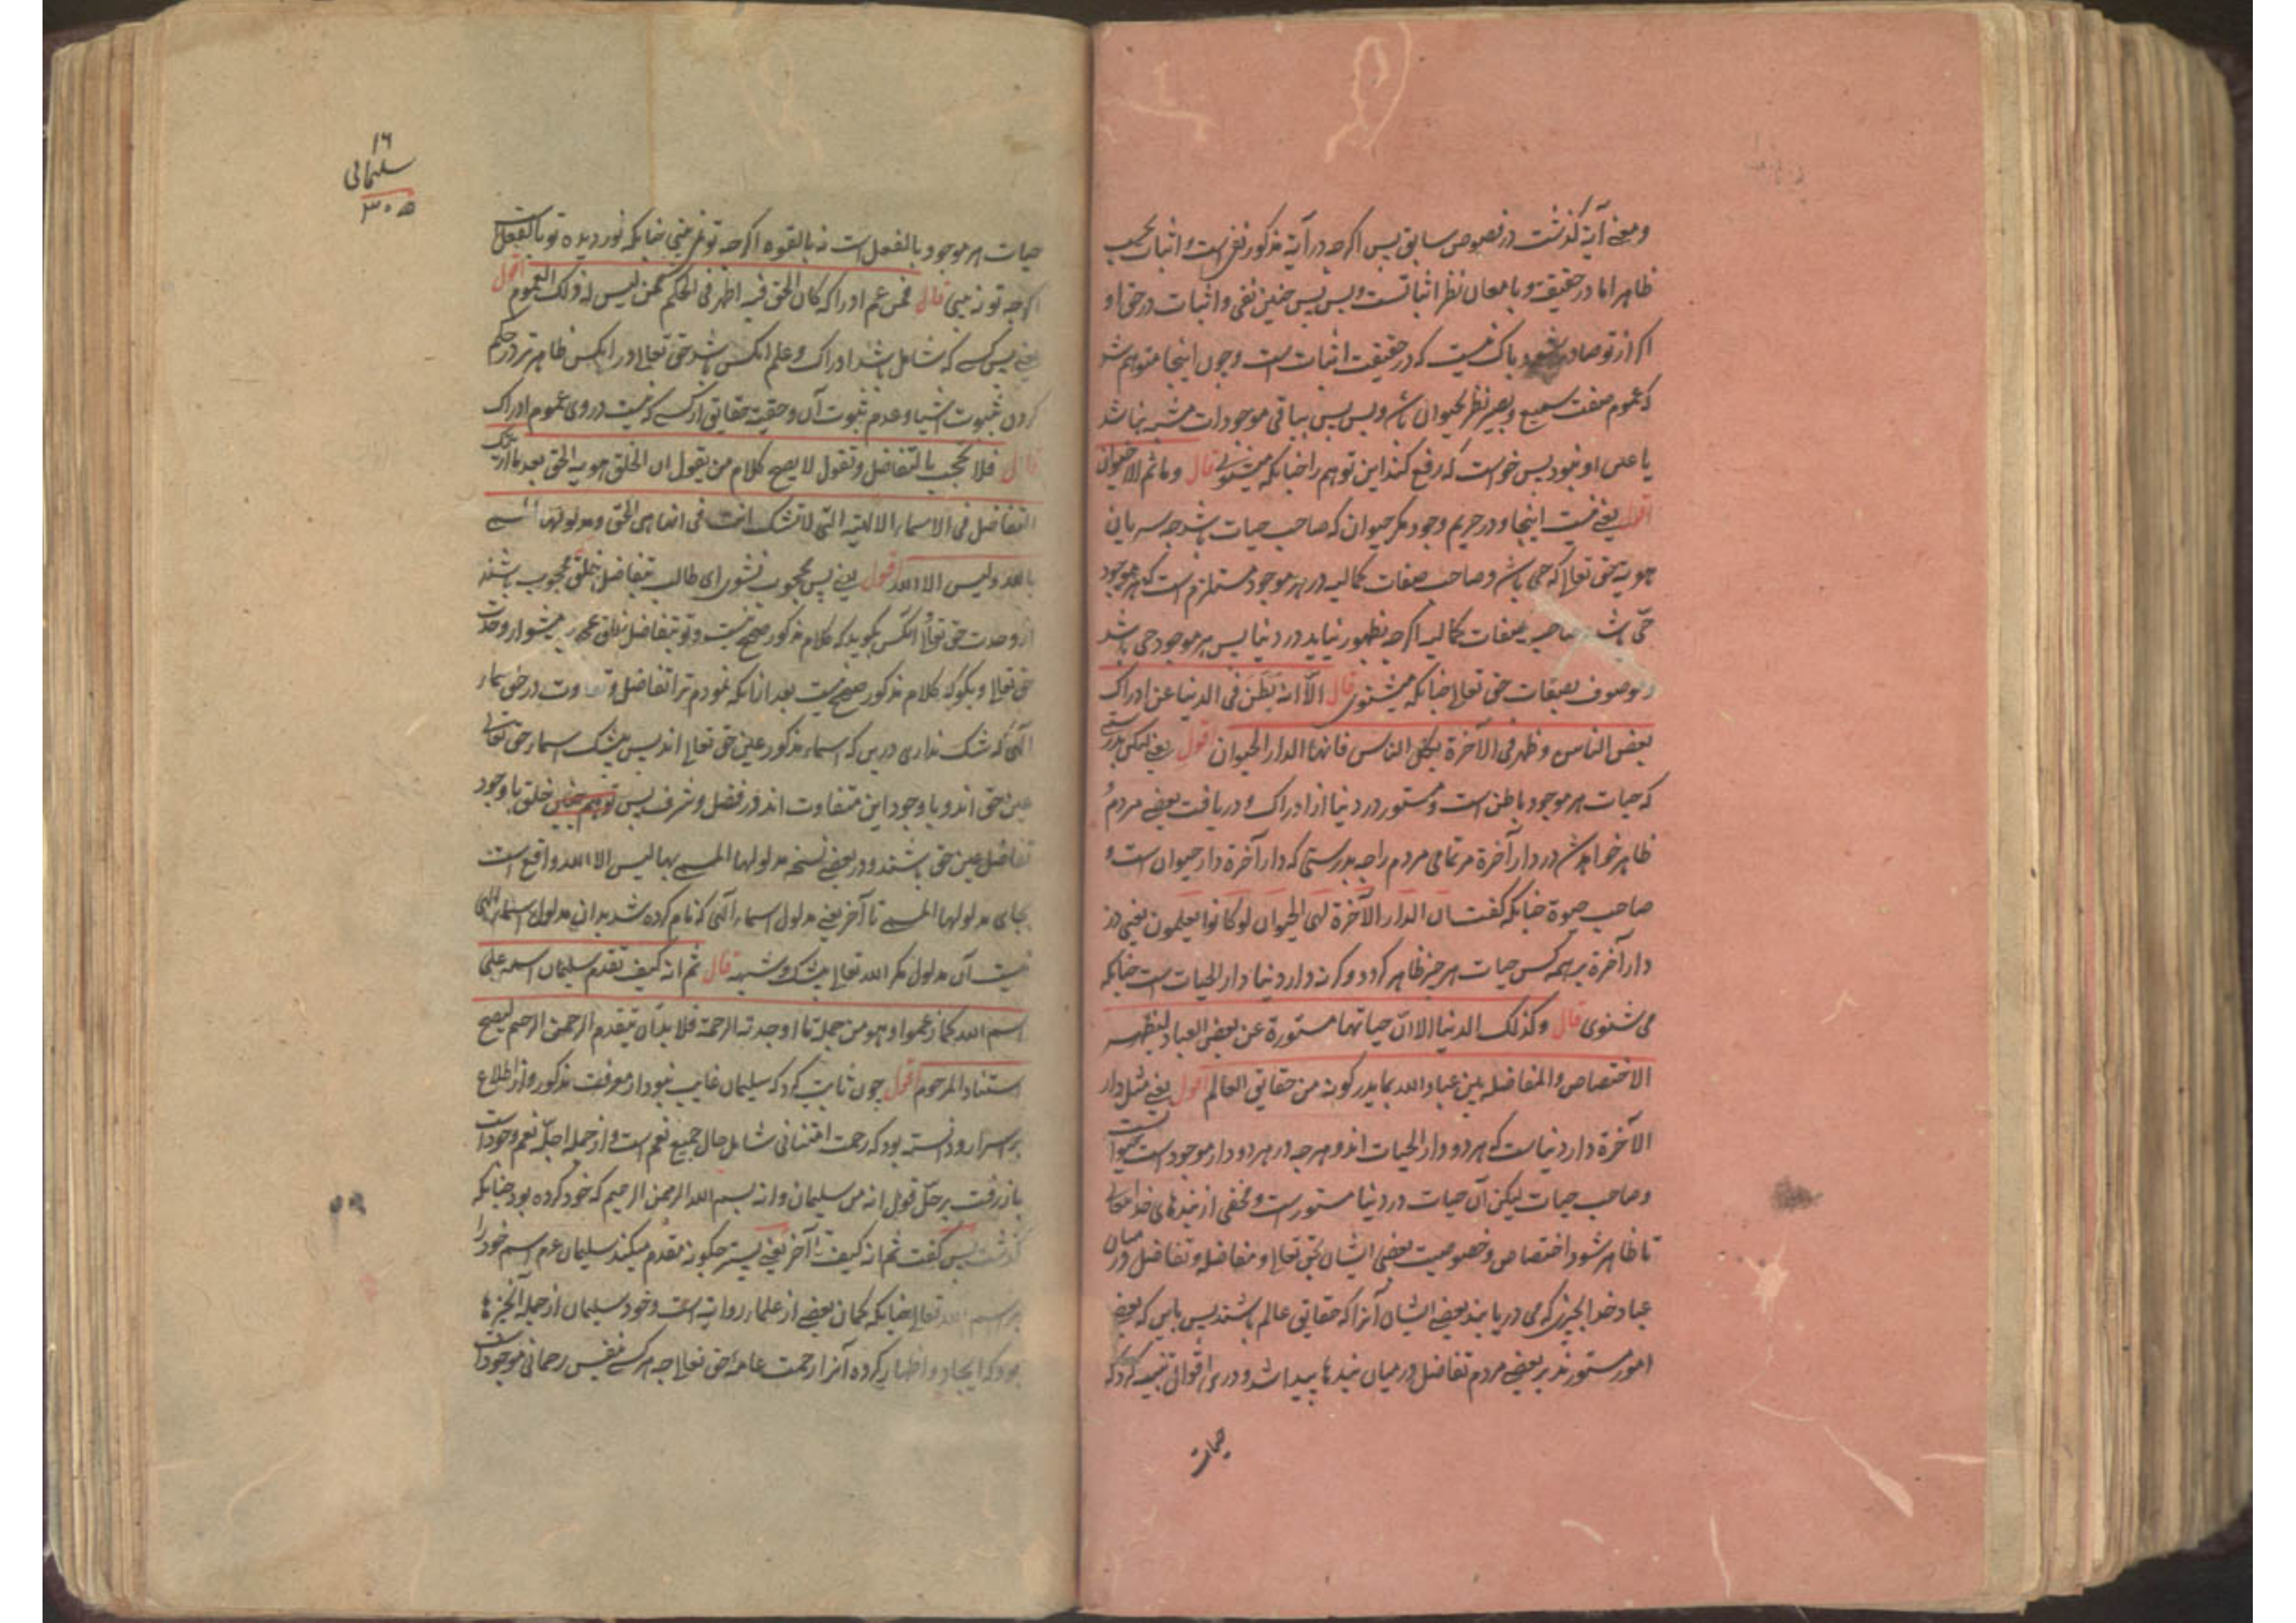 ومعنی آیة گذشت در نصوص سابق پس اگرچه در آیة مذکور نفی است و اثبات بحسب
ظاهر اما در حقیقت و بامعان نظر اثباتست و بس پس چنین نفی و اثبات در حق او
اگر از تو صادر شود باک نیست که در حقیقت اثبات است و چون اینجا متوهم شد
که عموم صفت سمیع و بصیر نظر بحیوان باشد و بس پس بباقی موجودات مشبه نباشد
یا عین او نبود پس خواست که رفع کند این توهم را چنانکه میشنوی قال وما ثم الا حیوان
اقول یعنی نیست اینجا و در حریم وجود مگر حیوان که صاحب حیات باشد چه سریان
هویة حق تعالی که حی باشد و صاحب صفات کمالیه در هر موجود مستلزم است که هر موجود
حی باشد و صاحب صفات کمالیه اگرچه بظهور نیاید در دنیا پس هر موجود حی باشد
و موصوف بصفات حق تعالی چنانکه میشنوی قال الا انه بطن فی الدنیا عن ادراک
بعض الناس وظهر فی الآخرة لکل الناس فانها الدار الحیوان اقول یعنی لیکن بدرستی
که حیات هر موجود باطن است و مستور در دنیا از ادراک و دریافت بعضی مردم و
ظاهر خواهد شد در دار آخرة مر تمامی مردم را چه بدرستی که دار آخرة دار حیوان است و
صاحب حیوة چنانکه گفت ان الدار الآخرة لهی الحیوان لو کانوا یعلمون یعنی در
دار آخرة بر همه کس حیات هر چیز ظاهر گردد و گرنه دار دنیا دار الحیات است چنانکه
می شنوی قال وکذلک الدنیا الا ان حیاتها مستورة عن بعض العباد لیظهر
الاختصاص والمفاضلة بین عباد الله بما یدرکونه من حقایق العالم اقول یعنی مثل دار
الآخرة دار دنیاست که هر دو دار الحیات اند و هرچه در هر دو دار موجود است حیوانست
و صاحب حیات لیکن آن حیات در دنیا مستور است و مخفی از بندهای خدا تعالی
تا ظاهر شود اختصاص و خصوصیت بعضی ایشان بحق تعالی و مفاضله و تفاضل در میان
عباد خدا بچیزی که می دریابند بعضی ایشان آنرا که حقایق عالم باشند پس باین که بعضی
امور مستورند بر بعضی مردم تفاضل در میان بندها پیدا شد و درین اقوال تنبیه کرد که
حیات
۱۶
سلیمانی
۳۰۵
حیات هر موجود بالفعل است نه بالقوه اگرچه تو نمی بینی چنانکه نور دیده تو بالفعل است
اگرچه تو نه بینی قال فمن عم ادراکه کان الحق فیه اظهر فی الحکم ممن لیس له ذلک العموم اقول
یعنی پس کسے که شامل باشد ادراک و علم آنکس باشد حق تعالی در آنکس ظاهرتر در حکم
کردن بثبوت اشیا و عدم ثبوت آن و حقیة حقایق از کسے که نیست در وی عموم ادراک
قال فلا تحجب بالتفاضل وتقول لا یصح کلام من یقول ان الخلق هویة الحق بعد ما اریتک
التفاضل فی الاسماء الالهیه التی لا تشک انت فی انها هی الحق ومدلولها المسمی
بالله ولیس الا الله اقول یعنی پس محجوب نشوی ای طالب بتفاضل خلق محجوب باشند
از وحدت حق تعالی آنکس بگوید که کلام مذکور صحیح نیست و تو بتفاضل خلق محجوب میشو از وحدت
حق تعالی و بگو که کلام مذکور صحیح نیست بعد از آنکه نمودم ترا تفاضل و تفاوت در حق اسماء
آلهی که شک نداری درین که اسماء مذکور عین حق تعالی اند پس بیشک اسماء حق تعالی
عین حق اند و با وجود این متفاوت اند در فضل و شرف پس توهم چنین خلق با وجود
تفاضل عین حق باشند و در بعضی نسخه مدلولها المسمی بها لیس الا الله واقع است
بجای مدلولها المسمی تا آخر یعنی مدلول اسماء آلهی که نام کرده شد بدان مدلول اسماء الهی
نیست آن مدلول مگر الله تعالی بیشک و شبه قال ثم انه کیف تقدم سلیمان اسمه علی
اسم الله کما زعموا وهو من جملة ما اوجدته الرحمة فلا بد ان یتقدم الرحمن الرحیم لیصح
استناد المرحوم اقول چون ثابت کرد که سلیمان غایب نبود از معرفت مذکور و از اطلاع
بر اسرار و دانسته بود که رحمت امتنانی شامل حال جمیع نعم است و از جمله اجل نعم وجود است
باز رفت بر حل قول انه من سلیمان وانه بسم الله الرحمن الرحیم که خود کرده بود چنانکه
گذشت پس گفت ثم انه کیف تا آخر یعنی پستر چگونه مقدم میکند سلیمان عم اسم خود را
بر اسم الله تعالی چنانکه گمان بعضی از علماء روایة است و خود سلیمان از جمله آنچیزها
بود که ایجاد و اظهار کرده آنرا رحمت عامه حق تعالی چه هر کسے بنفس رحمانی موجود است